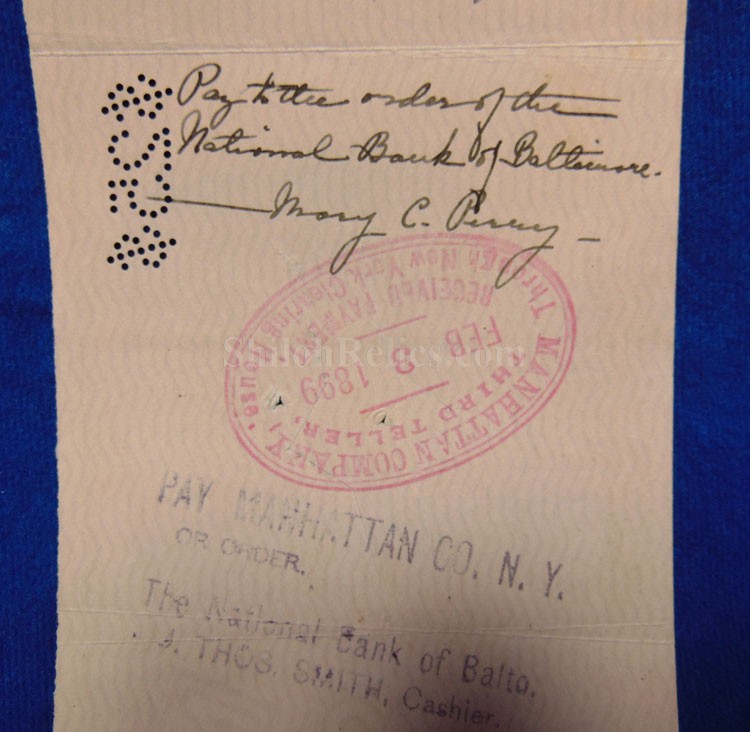 Pay to the order of the
National Bank of Baltimore.
Mary C. Perry
Through New York Clearing House.
RECEIVED PAYMENT
FEB 8 1899
THIRD TELLER,
MANHATTAN COMPANY,
ShilohRelics.com
PAY MANHATTAN CO. N. Y.
OR ORDER.
The National Bank of Balto.
J. THOS. SMITH, Cashier.